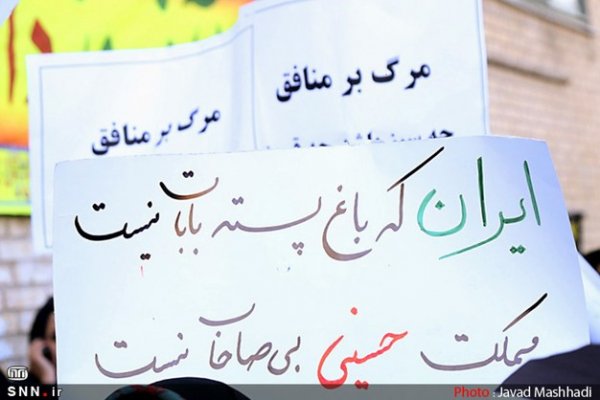 مرگ بر منافق
مرگ بر منافق
ایران که باغ پسته بابات نیست
مملکت حسینی بی صاحاب نیست
SNN.ir
Photo : Javad Mashhadi